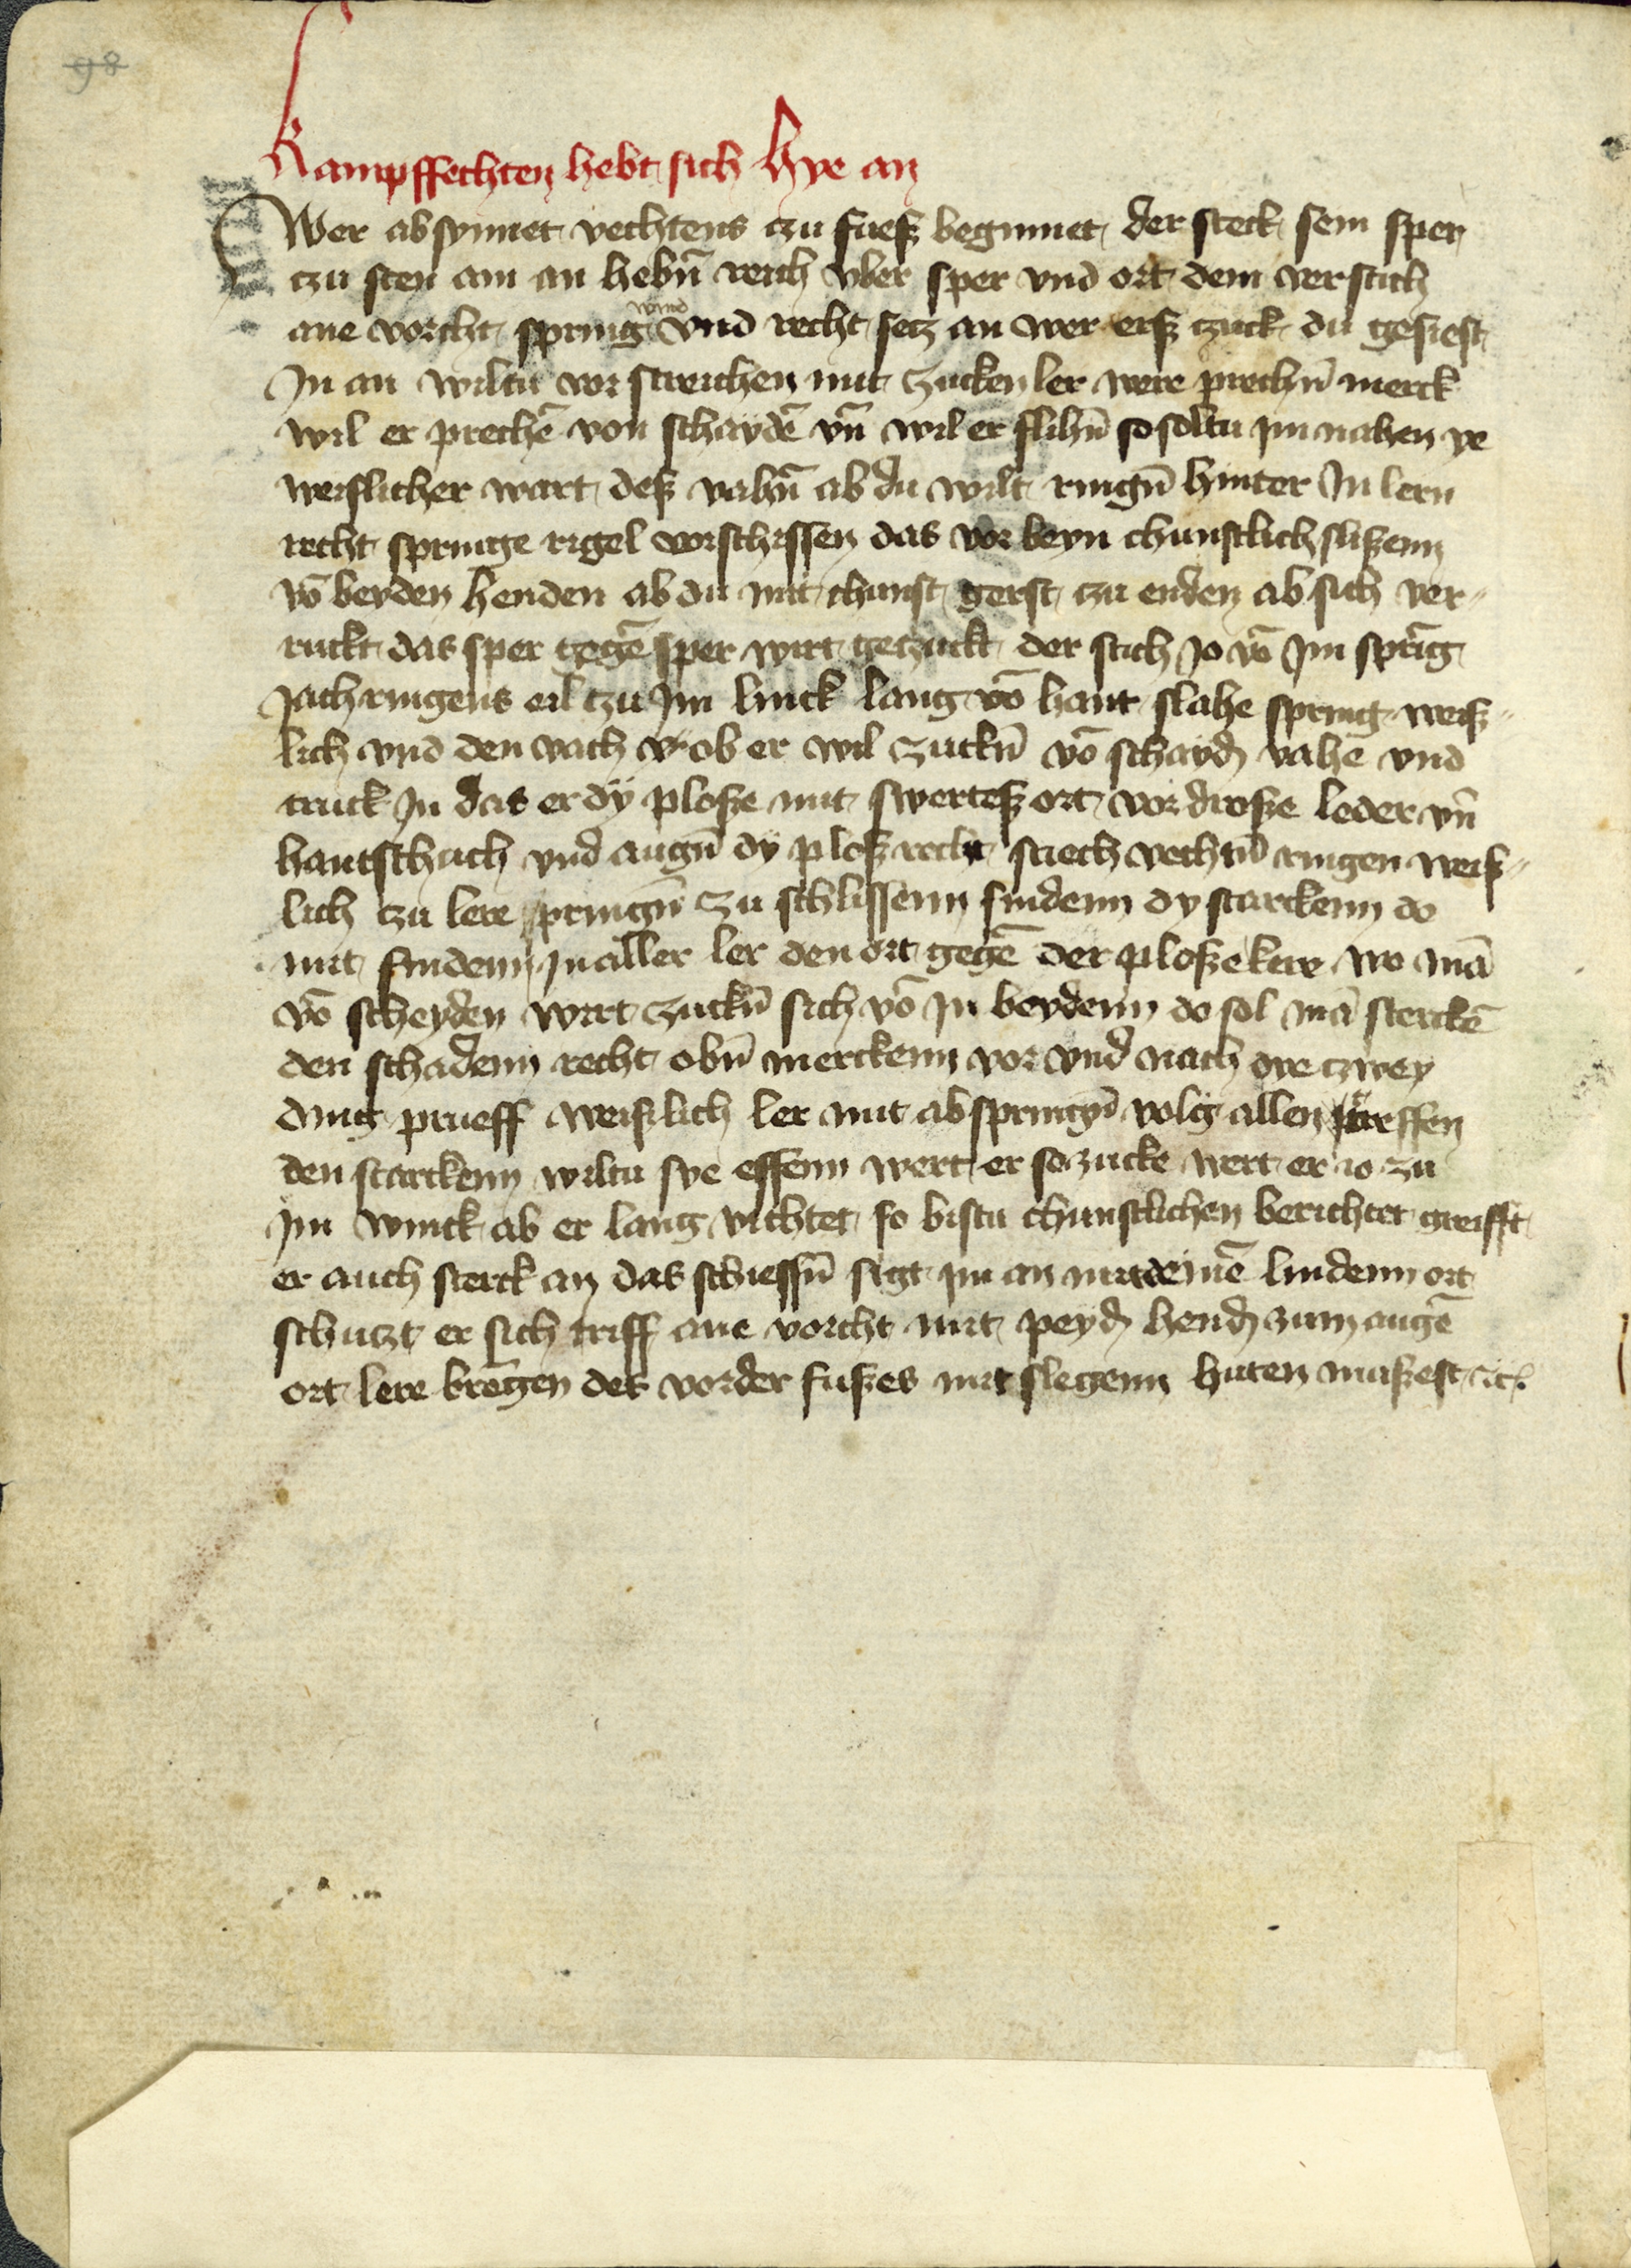 98
Kampffechten hebt sich hye an
Wer absynnet vechtens czu fuesz begynnet der steck sein sper
czu sten ain an hebn̄ reich vber sper vnd ort dem verstich
ane vorcht spring wind vnd recht setz an wer ersz czuck du gesiest
In an wiltu vor streichen mit zucken ler were prechn̄ merck
wil er prechē von schaydē vn̄ wil er flihn̄ so soltu im nahen ye
weislicher wart desz vahn̄ ab du wilt ringn̄ hinter In lern
recht springe rigel vorschissen das vor beyn chunstlich slisenn
vō beyden henden ab du mit chunst gerst zu enden ab sich ver-
ruckt das sper gegē sper wirt getzuckt der stich jo vō Im spring
Jach ringens eil tzu Im linck lang vō hant slahe spring weisz-
lich vnd den vach ob er wil zuckn̄ vō schayd vahe vnd
truck In das er dÿ plosze mit swertesz ort vordrosze leder vn̄
hantschuch vnd augn̄ dy plosz recht stech vechtn̄ ringen weis-
lich tzu lere springn̄ zu schlissenn findenn dy starckenn do
mit findenn In aller ler den ort gegē der plosze kere wo mā
vō scheyden wirt zuckn̄ sich vō In beydenn do sol mā sterckē
den schadenn recht obn̄ merckenn vor vnd nach dye czwey
ding prueff weislich ler mit abspringn̄ volg allen treffen
den starckenn wiltu sye effenn wert er so zucke wert er io zu
Im winck ab er lang vichtet so bistu chunstlichen berichtet greifft
er auch sterck an das schiessn̄ sigt im an mit deinē lindenn ort
schutzt er sich triff ane vorcht mit peyd hend zum augē
ort lere bregen des vorder fuszes mit slegenn huten muszest etc.